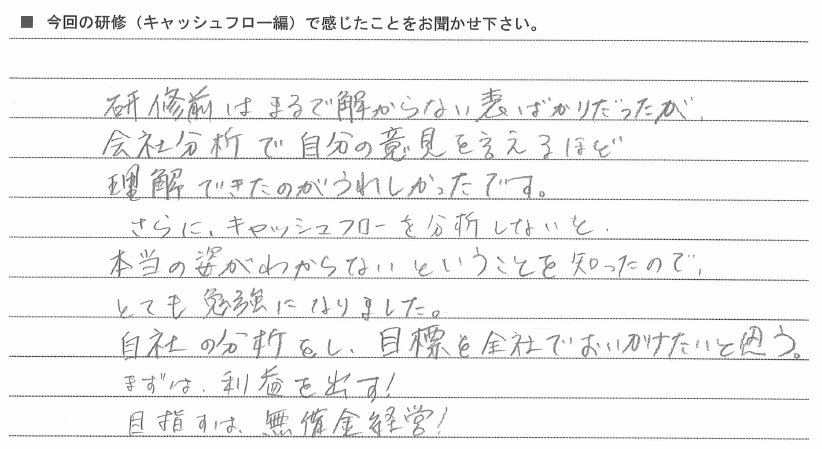 ■ 今回の研修（キャッシュフロー編）で感じたことをお聞かせ下さい。
研修前はまるで解からない表ばかりだったが、
会社分析で自分の意見を言えるほど
理解できたのがうれしかったです。
さらに、キャッシュフローを分析しないと、
本当の姿がわからないということを知ったので、
とても勉強になりました。
自社の分析をし、目標を全社でおいかけたいと思う。
まずは、利益を出す！
目指すは、無借金経営！